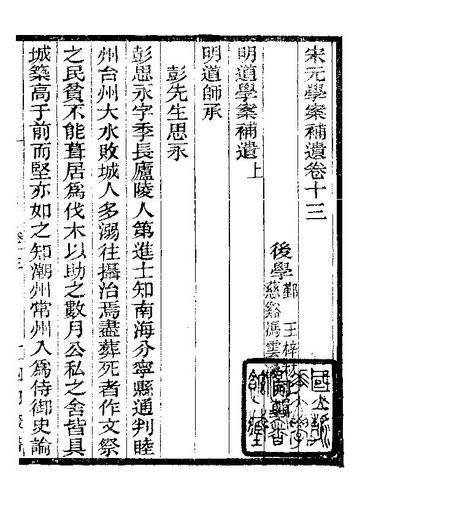 宋元學案補遺卷十三
後學
鄞 王梓材
慈谿馮雲
明道學案補遺上
明道師承
彭先生思永
彭思永字季長廬陵人第進士知南海分寧縣通判睦
州台州大水敗城人多溺往攝治焉盡葬死者作文祭
之民貧不能葺居為伐木以助之數月公私之舍皆具
城築高于前而堅亦如之知潮州常州入為侍御史論